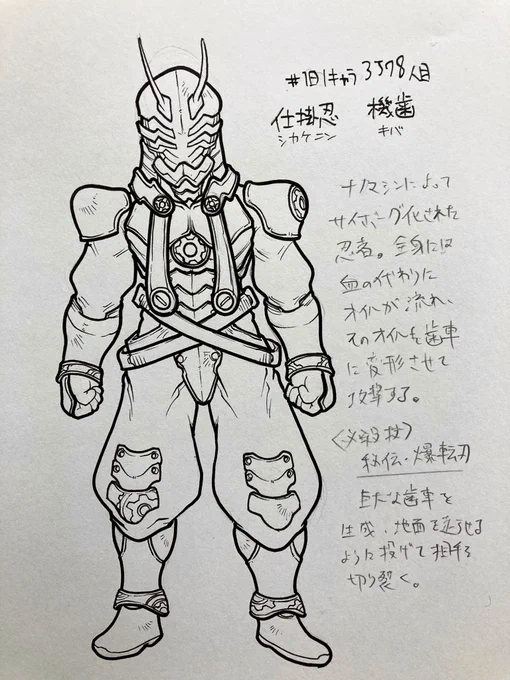 #1日1キャラ 3578人目
仕掛忍 機歯
シカケニン キバ
ナノマシンによって
サイボーグ化された
忍者。全身には
血の代わりに
オイルが流れ、
そのオイルを歯車
に変形させて
攻撃する。
〈必殺技〉
秘伝・爆転刃
巨大な歯車を
生成、地面を走らせる
ように投げて相手を
切り裂く。